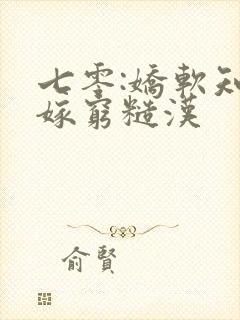 七零:嬌軟知
嫁窮糙漢
俞賢